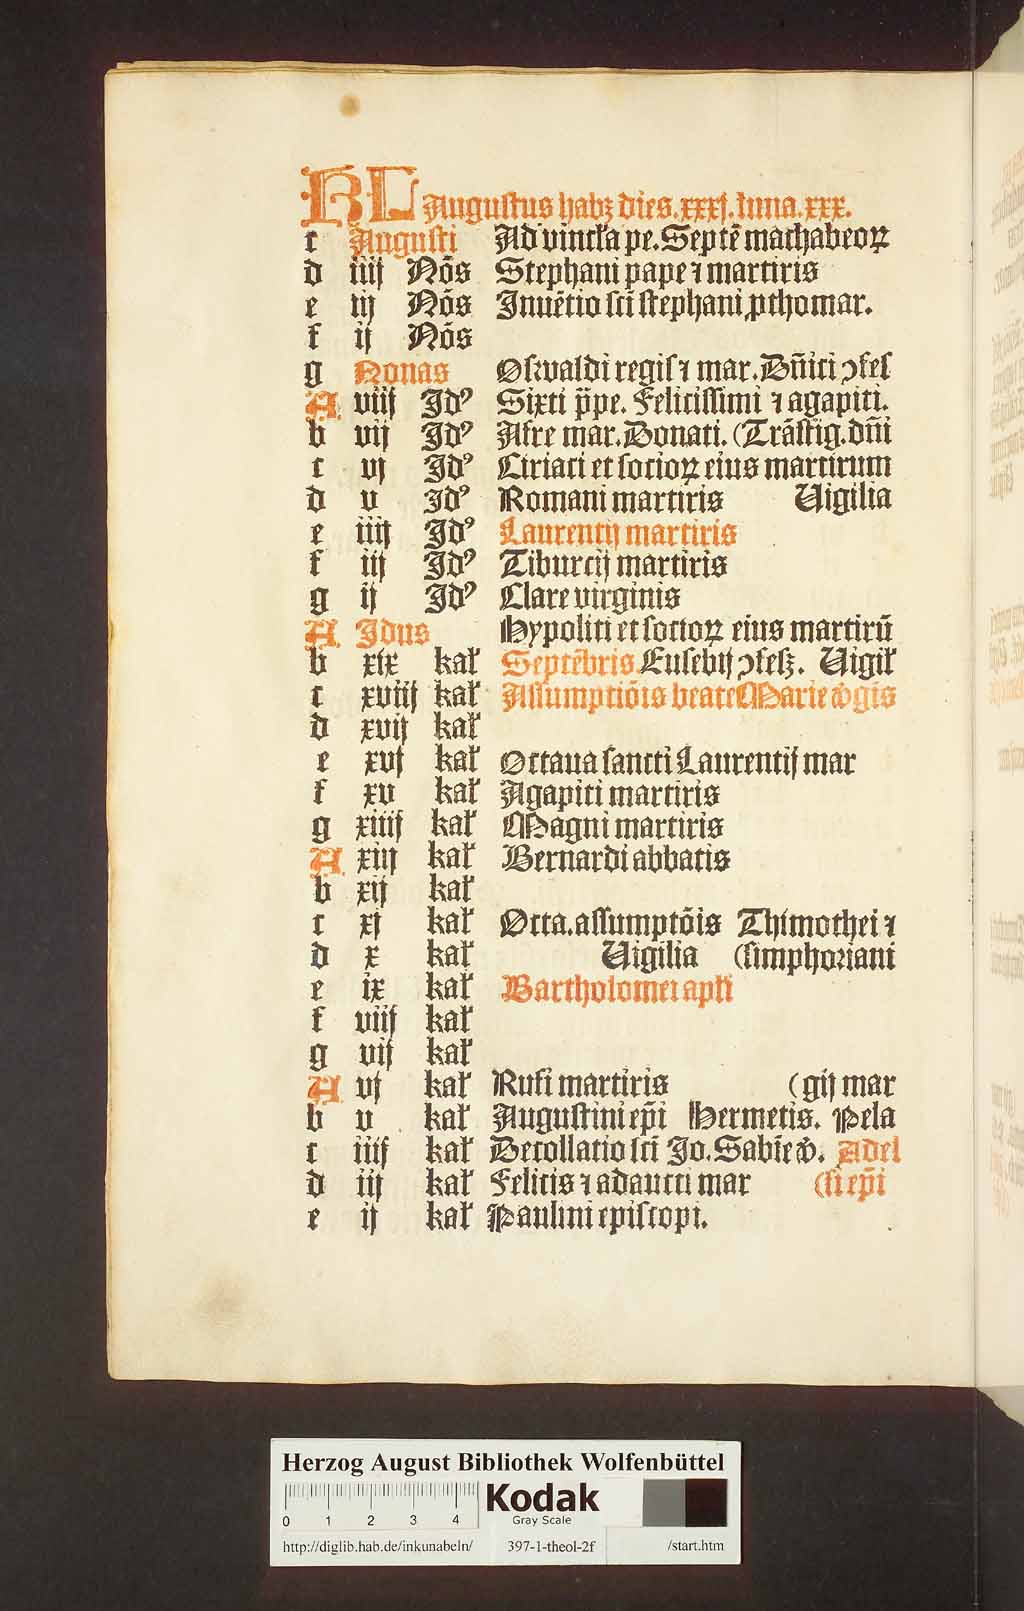 KL Augustus habꝫ dies. xxxj. luna. xxx.
c Augusti Ad vincła pe. Septē machabeoꝝ
d iiij Nōs Stephani pape ⁊ martiris
e iij Nōs Inuētio sct̄i stephani ꝓthomar.
f ij Nōs
g Nonas Oswaldi regis ⁊ mar. Dn̄ici ↄfes
A viij Idꝰ Sixti p̄pe. Felicissimi ⁊ agapiti.
b vij Idꝰ Afre mar. Donati. (Trāsfig. dn̄i
c vj Idꝰ Ciriaci et socioꝝ eius martirum
d v Idꝰ Romani martiris Uigilia
e iiij Idꝰ Laurentij martiris
f iij Idꝰ Tiburcij martiris
g ij Idꝰ Clare virginis
A Idus Hypoliti et socioꝝ eius martirū
b xix kał Septēbris. Eusebij ↄfesꝫ. Uigił
c xviij kał Assumptiōis beate Marie v̓gis
d xvij kał
e xvj kał Octaua sancti Laurentij mar
f xv kał Agapiti martiris
g xiiij kał Magni martiris
A xiij kał Bernardi abbatis
b xij kał
c xj kał Octa. assumptōis Thimothei ⁊
d x kał Uigilia (simphoriani
e ix kał Bartholomei apłi
f viij kał
g vij kał
A vj kał Rufi martiris (gij mar
b v kał Augustini ep̄i Hermetis. Pela
c iiij kał Decollatio sct̄i Jo. Sabīe v̓. Adel
d iij kał Felicis ⁊ adaucti mar (si ep̄i
e ij kał Paulini episcopi.
Herzog August Bibliothek Wolfenbüttel
0 1 2 3 4 Kodak
Gray Scale
http://diglib.hab.de/inkunabeln/ 397-1-theol-2f /start.htm